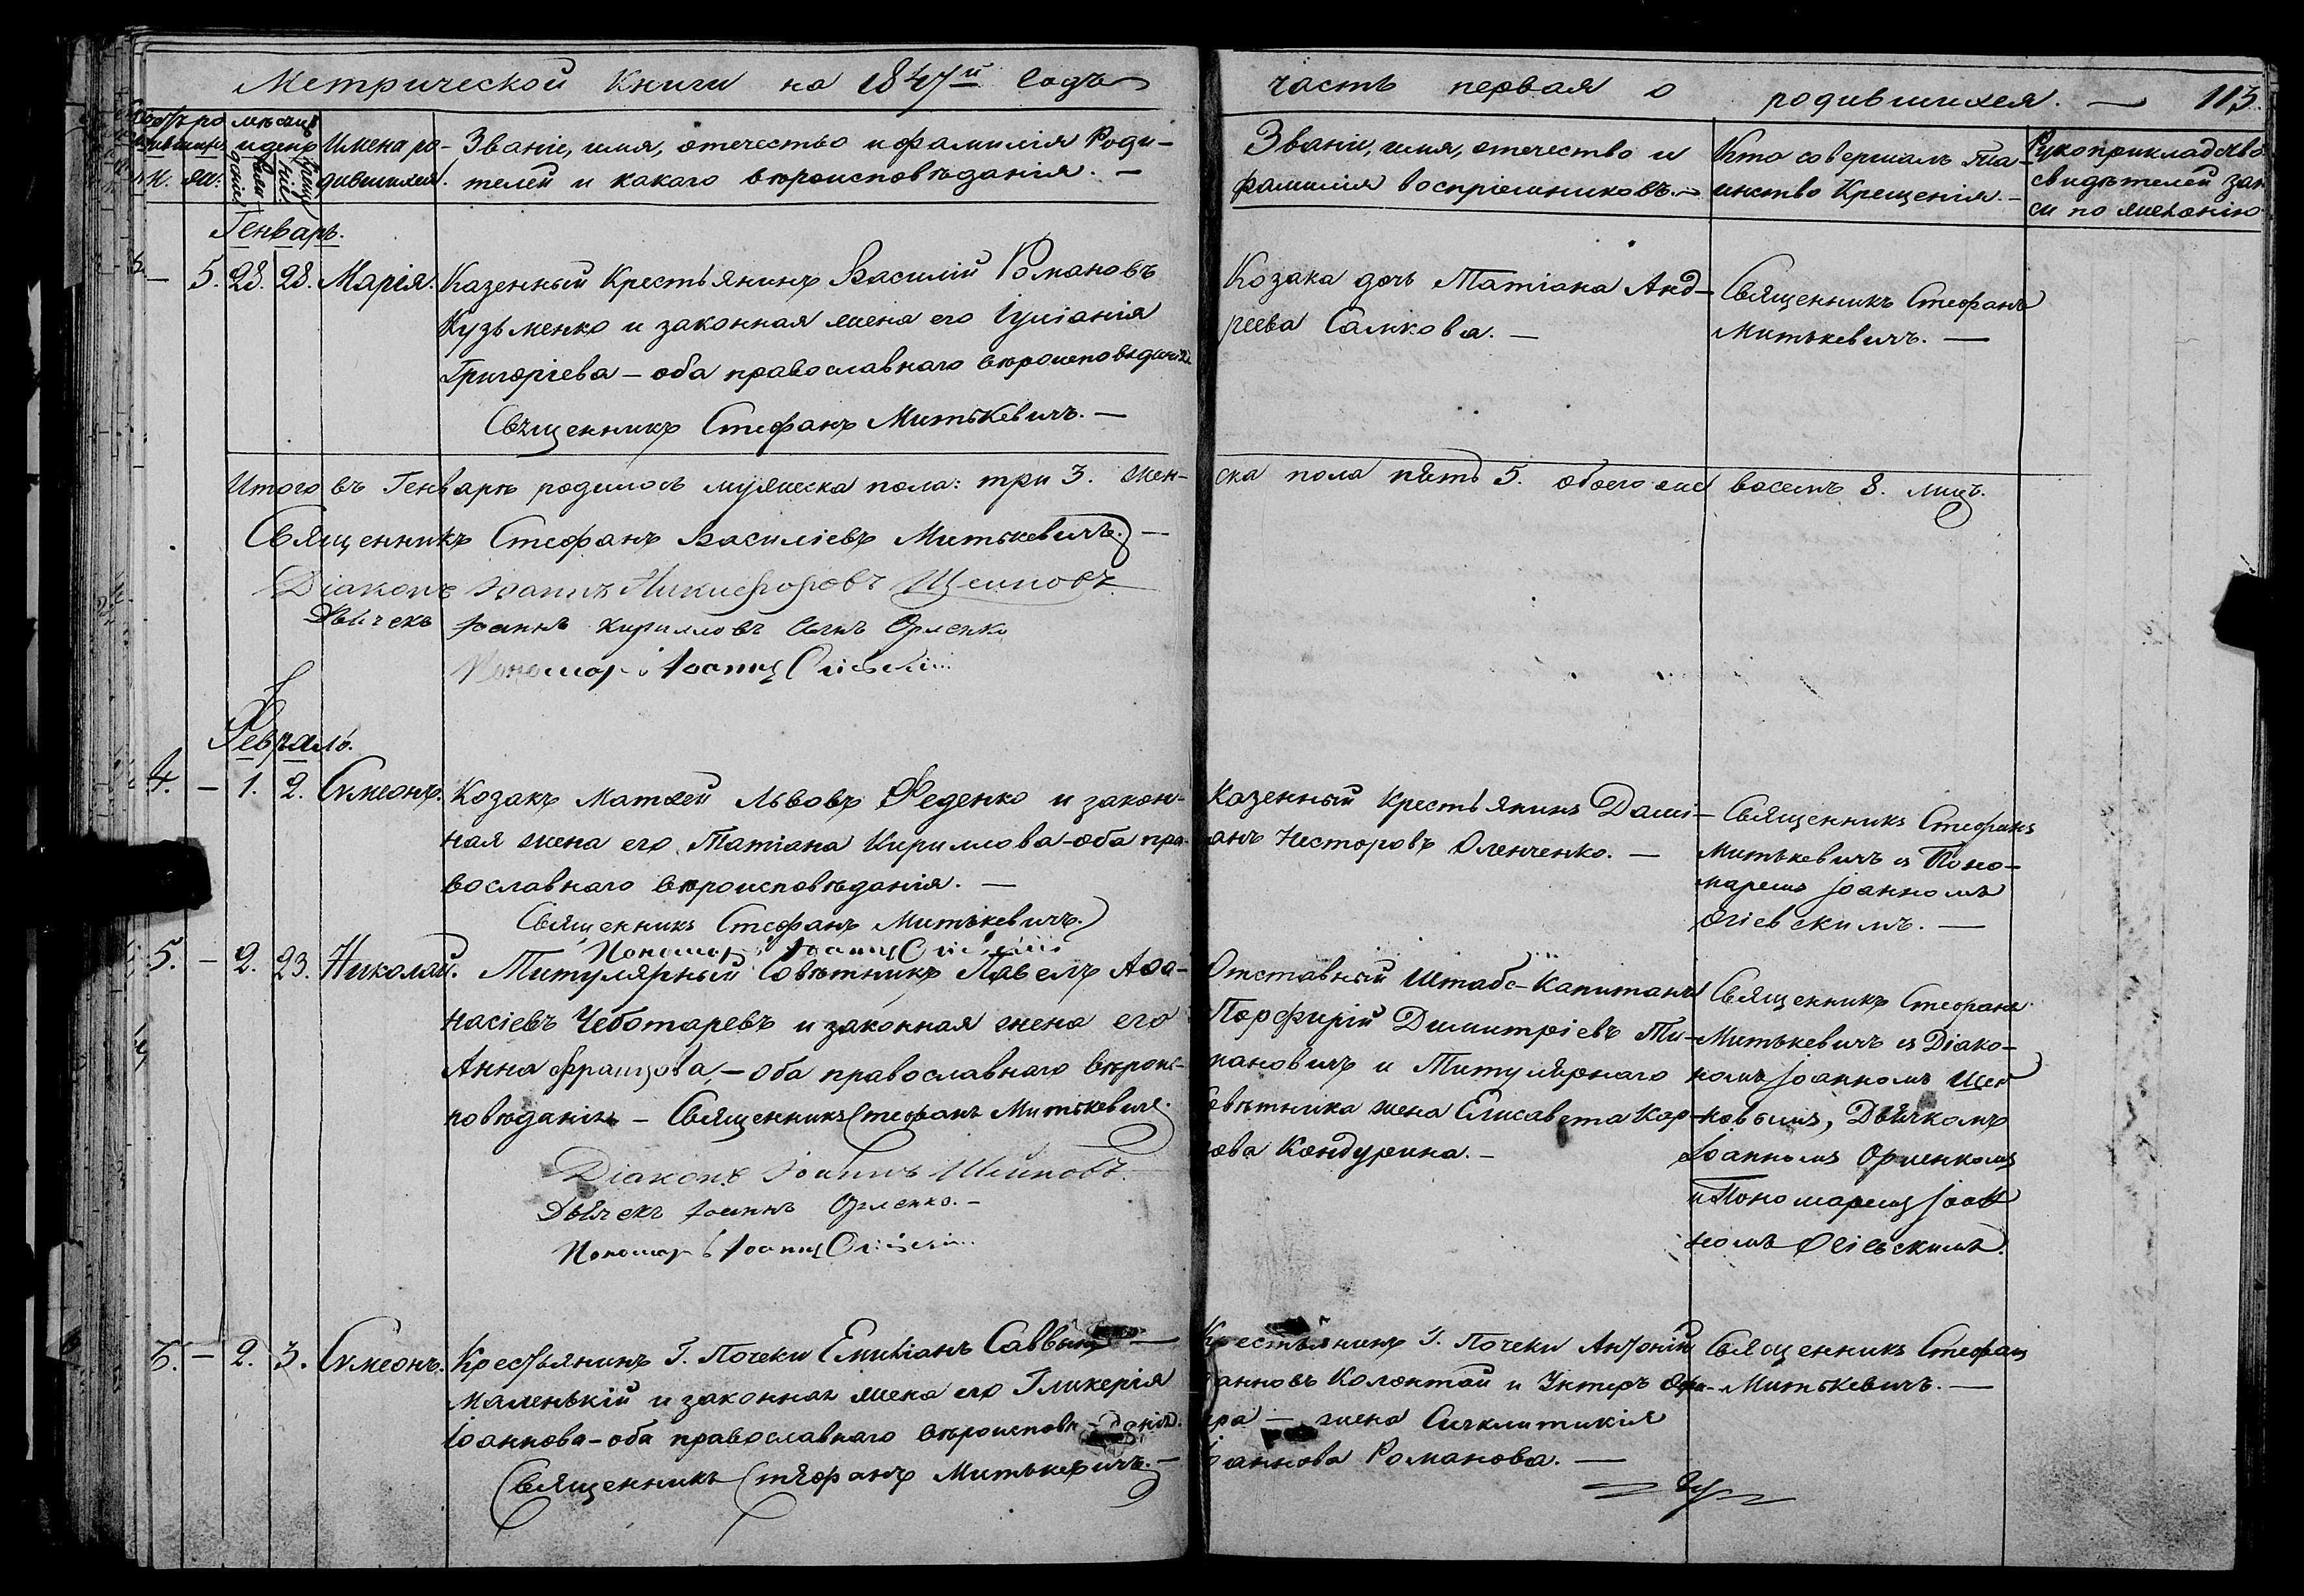 Метрической Книги на 1847й Годъ
часть первая о родившихся. — 113.
Имена ро-
дившихся.
Званіе, имя, отечество и фамилія Роди-
телей и какаго вѣроисповѣданія. —
Званіе, имя, отечество и
фамилія воспріемниковъ. —
Кто совершалъ Таи-
инство Крещенія. —
Рукоприкладство
свидѣтелей запи
си по желанію
Генварь.
— 5. 28. 28. Марія. Казенный Крестьянинъ Василій Романовъ
Кузьменко и законная жена его Іуліанія
Григоріева — оба православнаго вѣроисповѣданія
Священникъ Стефанъ Митькевичъ. —
Козака дочь Татіана Анд-
реева Салнкова. —
Священникъ Стефанъ
Митькевичъ. —
Итого въ Генварѣ родилось мужеска пола: три 3. жен-
ска пола пять 5. обоего восемь 8. лицъ.
Священникъ Стефанъ Василіевъ Митькевичъ. —
Діаконъ Іоаннъ Никифоровъ
Дьячекъ Іоаннъ Кирилловъ сынъ Орленко
Пономарь Іоаннъ
Февраль.
4. — 1. 2. Сѵмеонъ. Козакъ Матѳей Львовъ Феденко и закон-
ная жена его Татіана Кириллова — оба пра-
вославнаго вѣроисповѣданія. —
Священникъ Стефанъ Митькевичъ.
Пономарь Іоаннъ
Казенный Крестьянинъ Дамі-
анъ Несторовъ Оленченко. —
Священникъ Стефанъ
Митькевичъ съ Поно-
маремъ Іоанномъ
Огіевскимъ. —
5. — 2. 23. Николай. Титулярный Совѣтникъ Павелъ Аѳа-
насіевъ Чеботаревъ и законная жена его
Анна Францова, — оба православнаго вѣроис-
повѣданія — Священникъ Стефанъ Митькевичъ.
Діаконъ Іоаннъ
Дьячекъ Іоаннъ Орленко. —
Пономарь Іоаннъ
Отставный Штабс-Капитанъ
Порфирій Димитріевъ Ти-
мановичъ и Титулярнаго
Совѣтника жена Елисавета Кар-
ова Кондурина. —
Священникъ Стефанъ
Митькевичъ съ Діако-
номъ Іоанномъ Щеп
новымъ, Дьячкомъ
Іоанномъ Орленкомъ
и Пономаремъ Іоан
номъ Огіевскимъ.
6. — 2. 3. Сѵмеонъ. Крестьянинъ Г. Почеки Емиліанъ Саввинъ —
Маленькій и законная жена его Гликерія
Іоаннова — оба православнаго вѣроисповѣ-данія.
Священникъ Стефанъ Митькевичъ. —
Крестьянинъ Г. Почеки Антоній
Іоанновъ Колонтай и Унтеръ Офи-
цера — жена Сигклитикія
Іоаннова Романова. —
Священникъ Стефанъ
Митькевичъ. —